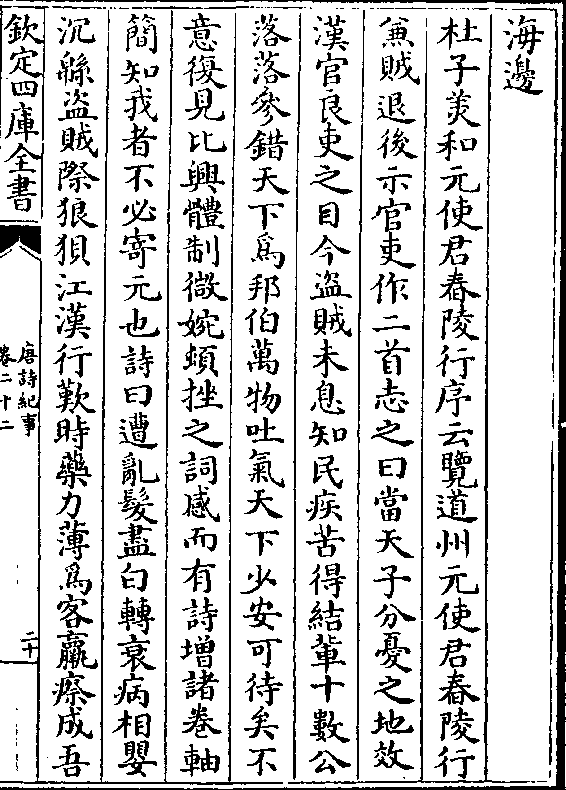 海邊
杜子羙和元使君舂陵行序云覽道州元使君舂陵行
兼賊退後示官吏作二首志之曰當天子分憂之地效
漢官良吏之目今盗賊未息知民疾苦得結輩十數公
落落參錯天下爲邦伯萬物吐氣天下少安可待矣不
意復見比興體制微婉頓挫之詞感而有詩增諸卷軸
簡知我者不必寄元也詩曰遭亂髮盡白轉衰病相嬰
沉緜盗賊際狼狽江漢行歎時藥力薄爲客羸瘵成吾
欽定四庫全書
唐詩紀事
卷二十二
二十